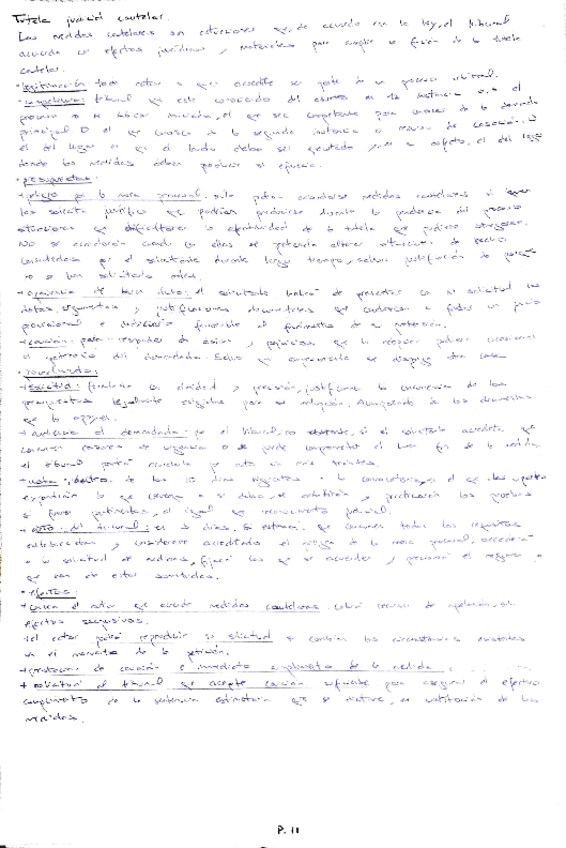 Tutela judicial cautelar.
Las medidas cautelares son actuaciones que, de acuerdo con la ley, el tribunal
acuerda con efectos jurídicos y materiales para cumplir la función de la tutela
cautelar.
· legitimación: todo actor que acredite ser parte de un proceso arbitral.
· competencia: tribunal que esté conociendo del asunto en 1ª instancia o, si el
proceso no se hubiese iniciado, el que sea competente para conocer de la demanda
principal. O el que conozca de la segunda instancia o recurso de casación. O
el del lugar en que el laudo deba ser ejecutado y en su defecto, el del lugar
donde las medidas deban producir su eficacia.
· presupuestos:
+ peligro por la mora procesal: sólo podrán acordarse medidas cautelares si
los solicita justifica que podrían producirse durante la pendencia del proceso
situaciones que dificultaren la efectividad de la tutela que pudiere otorgarse.
No se acordarán cuando con ellas se pretenda alterar situaciones de hecho
consentidas por el solicitante durante largo tiempo, salvo justificación de porqué
no se han solicitado antes.
+ apariencia de buen derecho: el solicitante habrá de presentar con su solicitud los
datos, argumentos y justificaciones documentales que conduzcan a fundar un juicio
provisional e indiciario favorable al fundamento de su pretensión.
+ caución: para responder de daños y perjuicios que la adopción pudiera ocasionar
al patrimonio del demandado. Salvo que expresamente se disponga otra cosa.
· procedimiento:
+ solicitud: formularse con claridad y precisión, justificando la concurrencia de los
presupuestos legalmente exigidos para su adopción. Acompañando de los documentos
que la apoyen.
+ audiencia al demandado: por el tribunal, no obstante, si el solicitante acredita que
concurren razones de urgencia o se puede comprometer el buen fin de la medida,
el tribunal podrá acordarla por auto sin más trámites.
+ vista: dentro de los 10 días siguientes a la convocatoria, en el que las partes
expondrán lo que convenga a su derecho, se admitirán y practicarán las pruebas
si fueren pertinentes, al igual que reconocimiento judicial.
+ auto del tribunal: en 5 días. Si estimara que concurren todos los requisitos
establecidos y considerare acreditado el peligro de la mora procesal, accederá
a la solicitud de medidas, fijará las que se acuerden y precisará el régimen a
que han de estar sometidas.
· efectos:
+ contra el auto que acuerde medidas cautelares cabrá recurso de apelación, sin
efectos suspensivos.
+ el actor podrá reproducir su solicitud si cambian las circunstancias existentes
en el momento de la petición.
+ prestación de caución e inmediato cumplimiento de la medida
+ solicitar al tribunal que acepte caución suficiente para asegurar el efectivo
cumplimiento de la sentencia estimatoria que se dictare, en sustitución de las
medidas.
P. 11